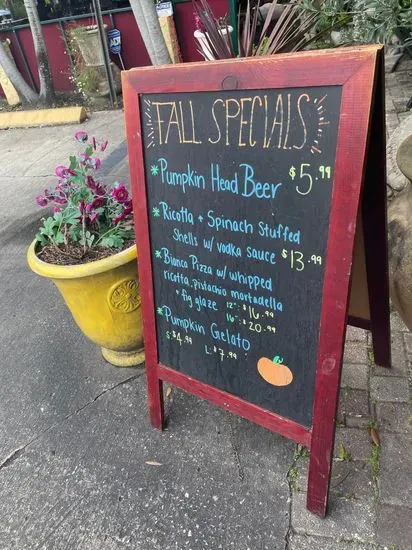 FALL SPECIALS
*Pumpkin Head Beer $5.99
*Ricotta + Spinach Stuffed
Shells w/ vodka sauce $13.99
*Bianca Pizza w/ whipped
ricotta, pistachio mortadella
+ fig glaze 12" $16.99
16" $20.99
*Pumpkin Gelato
S: $4.99 L: $7.99